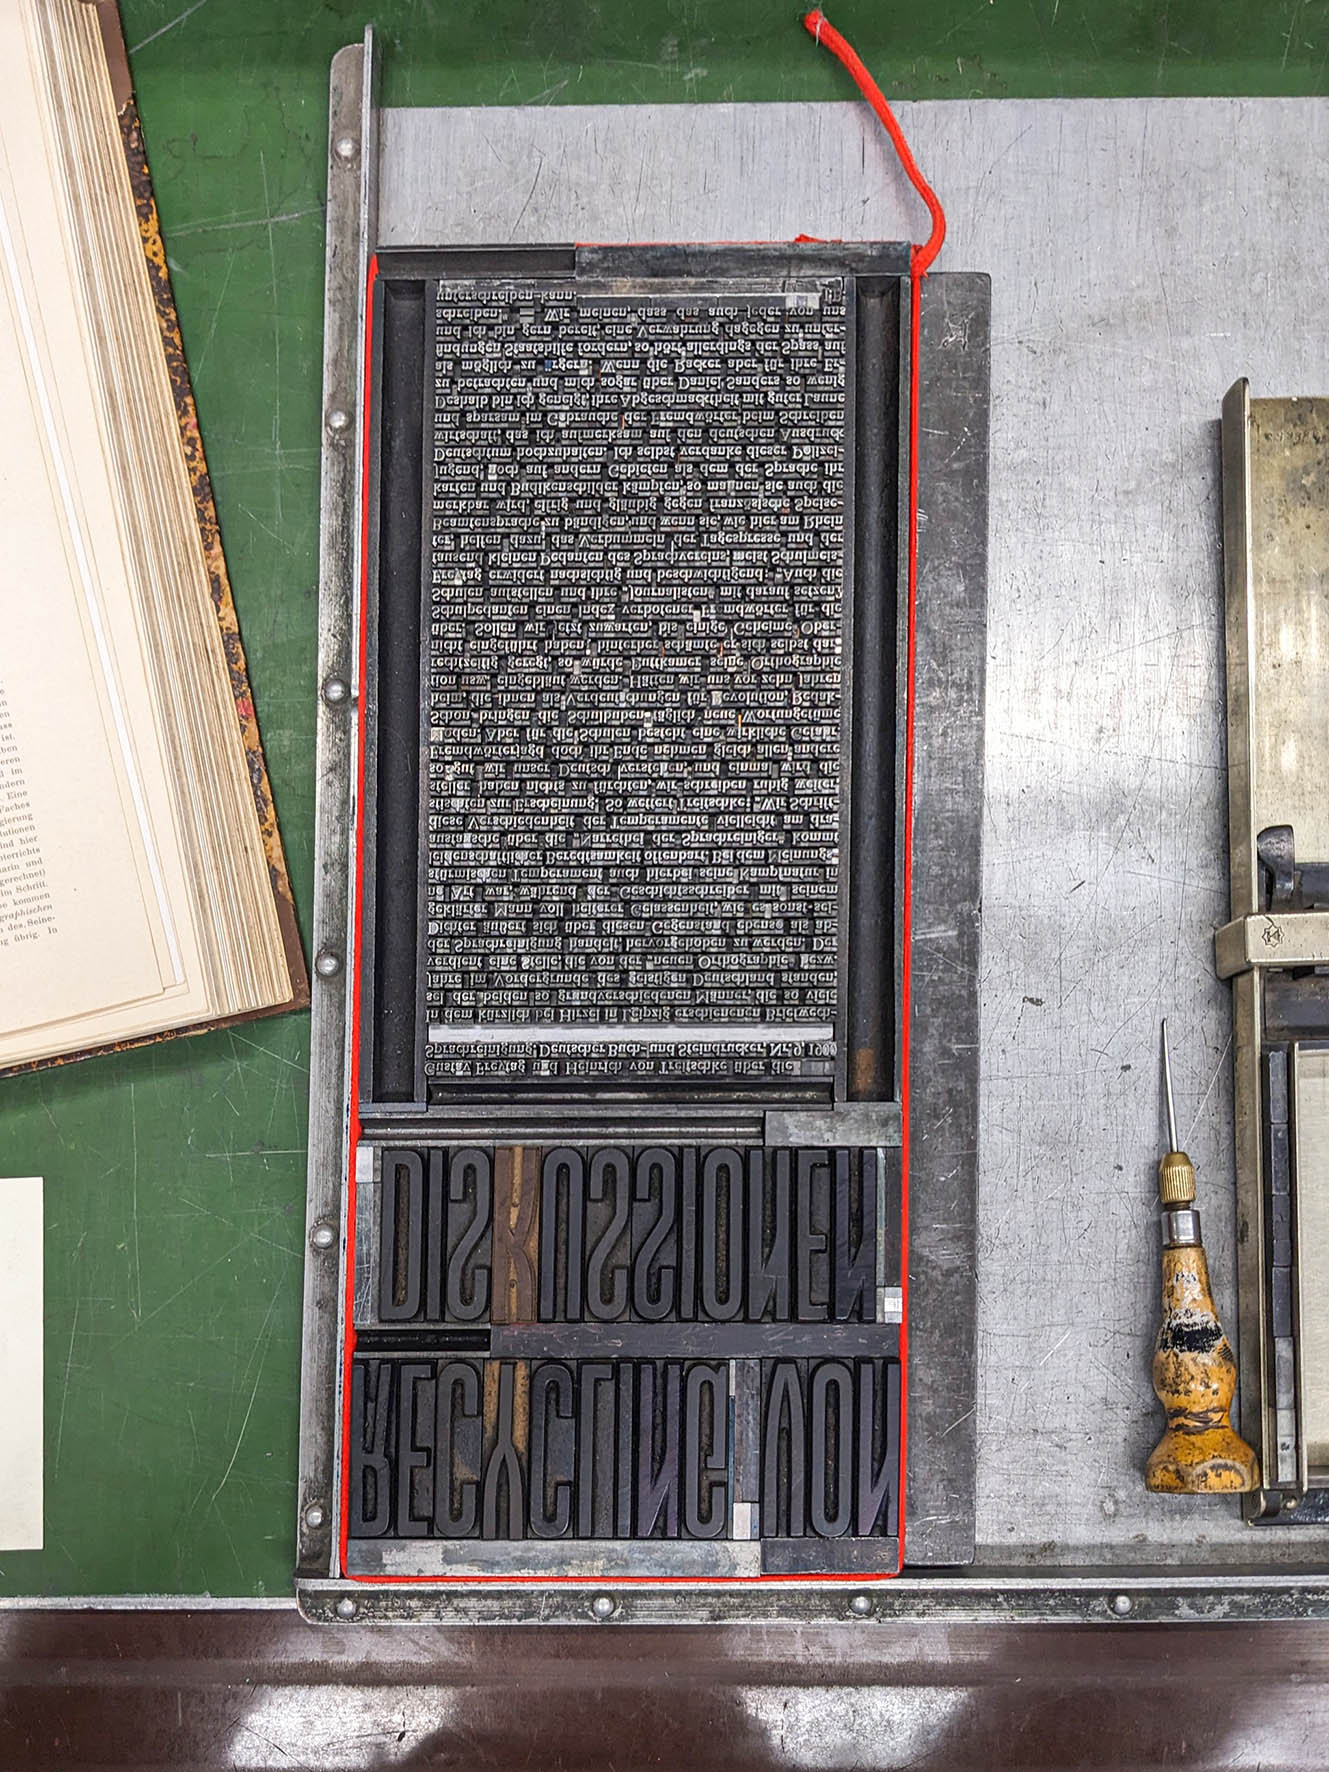 RECYCLING VON
DISKUSSIONEN
Gustav Freytag und Heinrich von Treitschke über die
Sprachreinigung, Deutscher Buch- und Steindrucker, Nr. 9, 1900
In dem kürzlich bei Hirzel in Leipzig erschienenen Briefwech-
sel der beiden so grundverschiedenen Männer, die so viele
Jahre im Vordergrunde des geistigen Deutschland standen
verdient eine Stelle, die von der „neuen Orthographie„ bezw.
der Sprachreinigung handelt, hervorgehoben zu werden. Der
Dichter äußert sich über diesen Gegenstand ebenso als ab-
geklärter Mann voll heiterer Gelassenheit, wie es sonst sei-
ne Art war, während der Geschichtsschreiber mit seinem
stürmischen Temperament auch hierbei seine Kampfnatur in
leidenschaftlicher Beredtsamkeit offenbart. Bei dem Meinungs-
austausche über die „Narrethei der Sprachreiniger“ kommt
diese Verschiedenheit der Temperamente vielleicht am dra-
stischsten zur Erscheinung. So wettert Treitschke: „Wir Schrift-
steller haben nichts zu fürchten, wir schreiben ruhig weiter
so gut wir unser Deutsch verstehen, und einmal wird die
Fremdwörterjagd doch ihr Ende nehmen gleich allen andere
Moden. Aber für die Schulen besteht eine wirkliche Gefahr.
Schon bringen die Schulbuben täglich neue Wortungetüme
heim, die ihnen als Verdeutschungen für Revolution, Reduk-
tion usw. eingebläut werden. Hätten wir uns vor zehn Jahren
rechtzeitig geregt, so würde Puttkamer seine Orthographie
nicht eingeführt haben; hinterher schämte er sich selbst da-
über. Sollen wir jetzt zuwarten, bis einige Geheime Ober-
Schulpedanten einen Index verbotener Fremdwörter für die
Schulen aufstellen und ihre „Journalisten“ mit darauf setzen?
Freytag erwidert nachsichtig und beschwichtigend: „Auch die
tausend kleinen Pedanten des Sprachvereins, meist Schulmeis-
ter helfen dazu, das Verbummeln der Tagespresse und der
Beamtensprache zu bändigen, und wenn sie, wie hier am Rhein
merkbar wird, eifrig und gläubig gegen französische Speise-
karten und Budikenschilder kämpfen, so mahnen sie auch die
Jugend, noch auf andern Gebieten als dem der Sprache ihr
Deutschtum hochzuhalten. Ich selbst verdanke dieser Polizei-
wirtschaft, das ich aufmerksam auf den deutschen Ausdruck
und sparsam im Gebrauche der Fremdwörter beim Schreiben
Deshalb bin ich geneigt, ihre Abgeschmacktheit mit guter Laune
zu betrachten und mich sogar über Daniel Sanders so wenig
als möglich zu ärgern. Wenn die Racker aber für ihre Er-
findungen Staatshilfe fordern, so hört allerdings der Spass auf
und ich bin gern bereit, eine Verwahrung dagegen zu unter-
schreiben.“ – Wir meinen, dass das auch jeder von uns
unterschreiben kann.